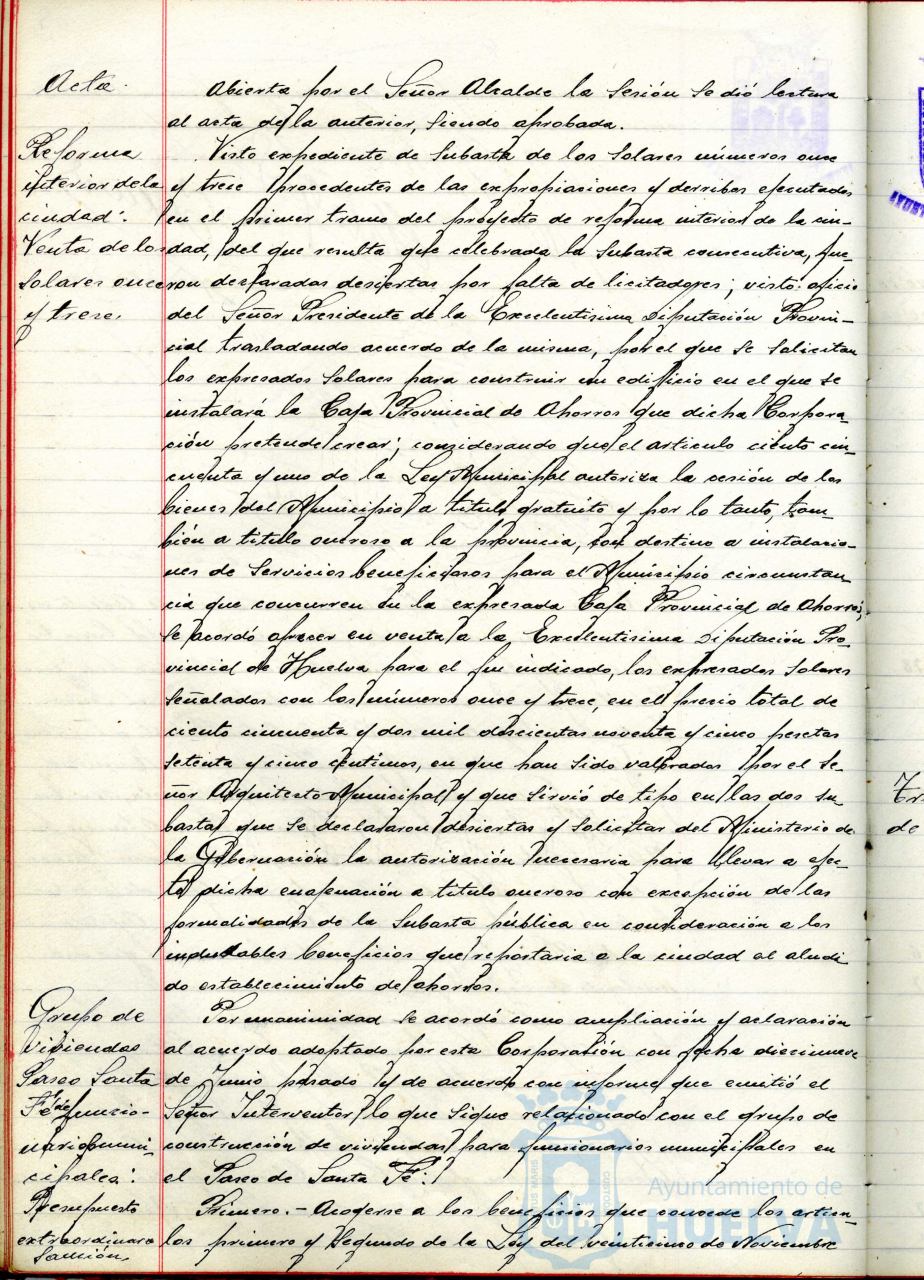 Acta.
Abierta por el Señor Alcalde la Sesión Se dió lectura
al acta de la anterior, siendo aprobada.
Reforma
interior de la
ciudad:
Venta de los
solares once
y trece.
Visto expediente de Subasta de los Solares números once
y trece procedentes de las expropiaciones y derribos ejecutados
en el primer tramo del proyecto de reforma interior de la ciu-
dad, del que resulta que celebrada la Subasta consecutiva, fue-
ron declaradas desiertas por falta de licitadores; visto oficio
del Señor Presidente de la Excelentisima Diputación Provin-
cial trasladando acuerdo de la misma, por el que se solicitan
los expresados Solares para construir un edificio en el que se
instalará la Caja Provincial de Ahorros que dicha Corpora-
ción pretende crear; considerando que el articulo ciento cin-
cuenta y uno de la Ley Municipal autoriza la cesión de los
bienes del Municipio a titulo gratuito y por lo tanto, tam-
bién a titulo oneroso a la provincia, con destino a instalacio-
nes de Servicios beneficiosos para el Municipio circunstan-
cia que concurren en la expresada Caja Provincial de Ahorros;
se acordó ofrecer en venta a la Excelentisima Diputación Pro-
vincial de Huelva para el fin indicado, los expresados Solares
Señalados con los números once y trece, en el precio total de
ciento cincuenta y dos mil doscientas noventa y cinco pesetas
setenta y cinco centimos, en que han sido valorados por el Se-
ñor Arquitecto Municipal y que sirvió de tipo en las dos su-
bastas que se declararon desiertas y solicitar del Ministerio de
la Gobernación la autorización necesaria para llevar a efec-
to dicha enajenación a titulo oneroso con excepción de las
formalidades de la Subasta pública en consideración a los
indudables beneficios que reportaria a la ciudad el aludi-
do establecimiento de ahorros.
Grupo de
Viviendas
Paseo Santa
Fé de funcio-
narios muni-
cipales:
Presupuesto
extraordinario
Sanción
Por unanimidad se acordó como ampliación y aclaración
al acuerdo adoptado por esta Corporación con fecha diecinueve
de Junio pasado y de acuerdo con informe que emitió el
Señor Interventor lo que sigue relacionado con el grupo de
construcción de viviendas para funcionarios municipales en
el Paseo de Santa Fé:
Primero.- Acogerse a los beneficios que concede los articu-
los primero y Segundo de la Ley del veinticinco de Noviembre
de
Ayuntamiento de
HUELVA